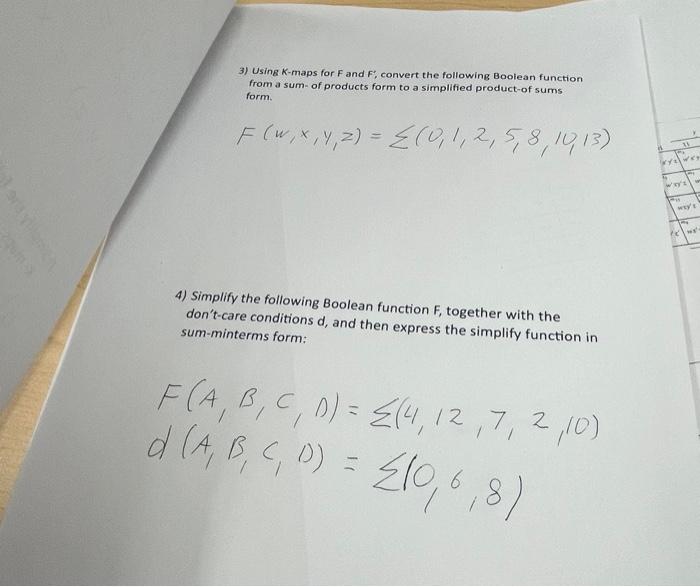 3) Using K-maps for F and F', convert the following Boolean function
from a sum- of products form to a simplified product-of sums
form.
F (w,x,y,z) = Σ(0,1,2,5,8,10,13)
4) Simplify the following Boolean function F, together with the
don't-care conditions d, and then express the simplify function in
sum-minterms form:
F(A, B, C, D) = Σ(4, 12, 7, 2, 10)
d (A, B, C, D) = Σ(0, 6, 8)